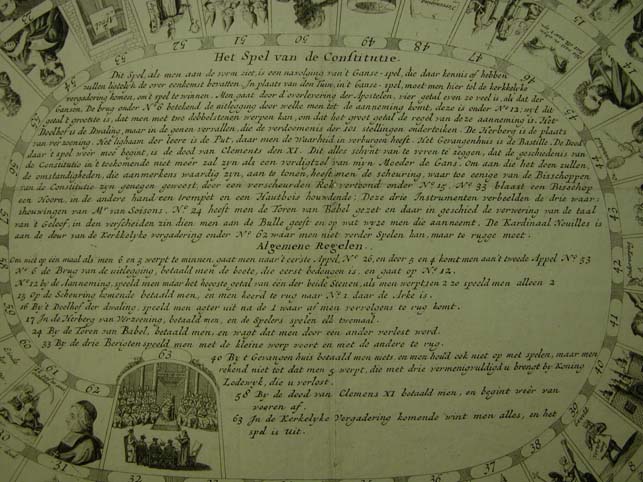 Het Spel van de Constitutie.
Dit Spel, als men aan de vorm ziet, is een navolging van't Ganse-spel, die daar kennis of hebben
zullen ligtelyk de over eenkomst bevatten. In plaats van den Tuin, in't Ganse-spel, moet men hier tot de kerkelyke
vergadering komen, om't spel te winnen. Men gaat door d'overlevering der Apostelen, vier getal even zo veel is, als dat der
Gansen. De brug onder Nº 6 betekend de uitlegging door welke men tot de aanneming komt, deze is onder Nº 12; wyl dit
getal 't grootste is, dat men met twee dobbelstenen werpen kan, om dat het groot getal de regel van deze aanneming is. Het
Doolhof is de Dwaling, maar in de genen vervallen, die de verdoemenis der 101 stellingen ondertekenen. De Herberg is de plaats
van verzoening. Het lighaam der leere is de Put, daar men de Waarheid in verborgen heeft. Het Gevangenhuis is de Bastille. De Dood
daar't spel wéér mee begint, is de dood van Clements den XI. Dit alles schynt van te voren te zeggen, dat de geschiedenis van
de Constitutie in't toekomende niet méér zal zyn als een vordigtzel van myn Moeder de Gans. Om aan die het doen zullen,
de omstandigheden, die aanmerkens waardig zyn, aan te tonen, heeft men de scheuring, waar toe eenige van de Bisschoppen
van de Constitutie zyn genegen geweest, door een verscheurden Rok vertoond onder Nº 15. Nº 33 blaast een Bisschop
een Hoorn, in de andere hand een trompet en een Hautbois houwdende: Deze drie Instrumenten verbeelden de drie waar:
schouwingen van Mr van Soisons. Nº 24 heeft men de Toren van Babel gezet en daar in geschied de verwering van de taal
van't Geloof, in den verscheiden zin dien men aan de Bulle geeft en op wat wyze men die aanneemt. De Kardinaal Noailles is
aan de deur van de Kerkelyke vergadering onder Nº 62 waar men niet verder Spelen kan, maar te rugge moet.
Algemene Regelen.
Om niet op één maal als men 6 en 3 werpt te winnen, gaat men naar't eerste Appel, Nº 26, en door 5 en 4 komt men aan't tweede Appel Nº 53
Nº 6 de Brug van de uitlegging, betaald men de boete, die eerst bedongen is, en gaat op Nº 12.
Nº 12 by de Aanneming, speeld men met het hoogste getal van één der beide Stenen, als men werpt 2 en 2 zo speeld men alleen 2
15 Op de Scheuring komende betaald men, en men keerd te rug naar Nº 1 daar de Arke is.
16 By't Doolhof der dwaling, speeld men agter uit na de 1 waar af men vervolgens te rug komt.
17 In de Herberg van Verzoening, betaald men, en de Spelers spelen elk tweemaal.
24 By de Toren van Babel, betaald men, en wagt dat men door een ander verlost werd.
33 By de drie Berigten speeld men met de kleine werp voort en met de andere te rug.
40 By't Gevangen huis betaald men niets, en men houd ook niet op met spelen, maar men
rekend niet tot dat men 5 werpt, die met drie vermenigvuldigd u brengt by Koning
Lodewyk, die u verlost.
58 By de dood van Clemens XI betaald men, en begint wéér van
vooren af.
63 In de Kerkelyke Vergadering komende wint men alles, en het
spel is uit.
63
62
61
55
53
52
51
50
49
48
46
45
42
41
40
39
38
31
30